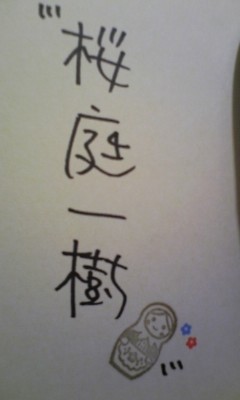 桜庭一樹